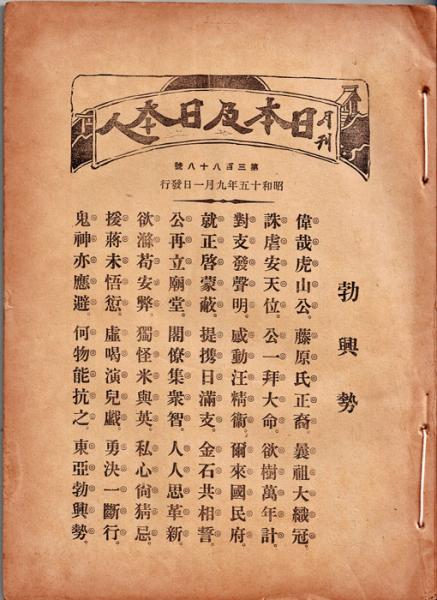 月刊
日本及日本人
第三百八十八號
昭和十五年九月一日發行
勃興勢
偉哉虎山公。藤原氏正裔。曩祖大織冠。
誅虐安天位。公一拜大命。欲樹萬年計。
對支發聲明。感動汪精衞。爾來國民府。
就正啓蒙蔽。提携日滿支。金石共相誓。
公再立廟堂。閣僚集衆智。人人思革新。
欲滌苟安弊。獨怪米與英。私心尙猜忌。
援蔣未悟愆。虛喝演兒戲。勇決一斷行。
鬼神亦應避。何物能抗之。東亞勃興勢。